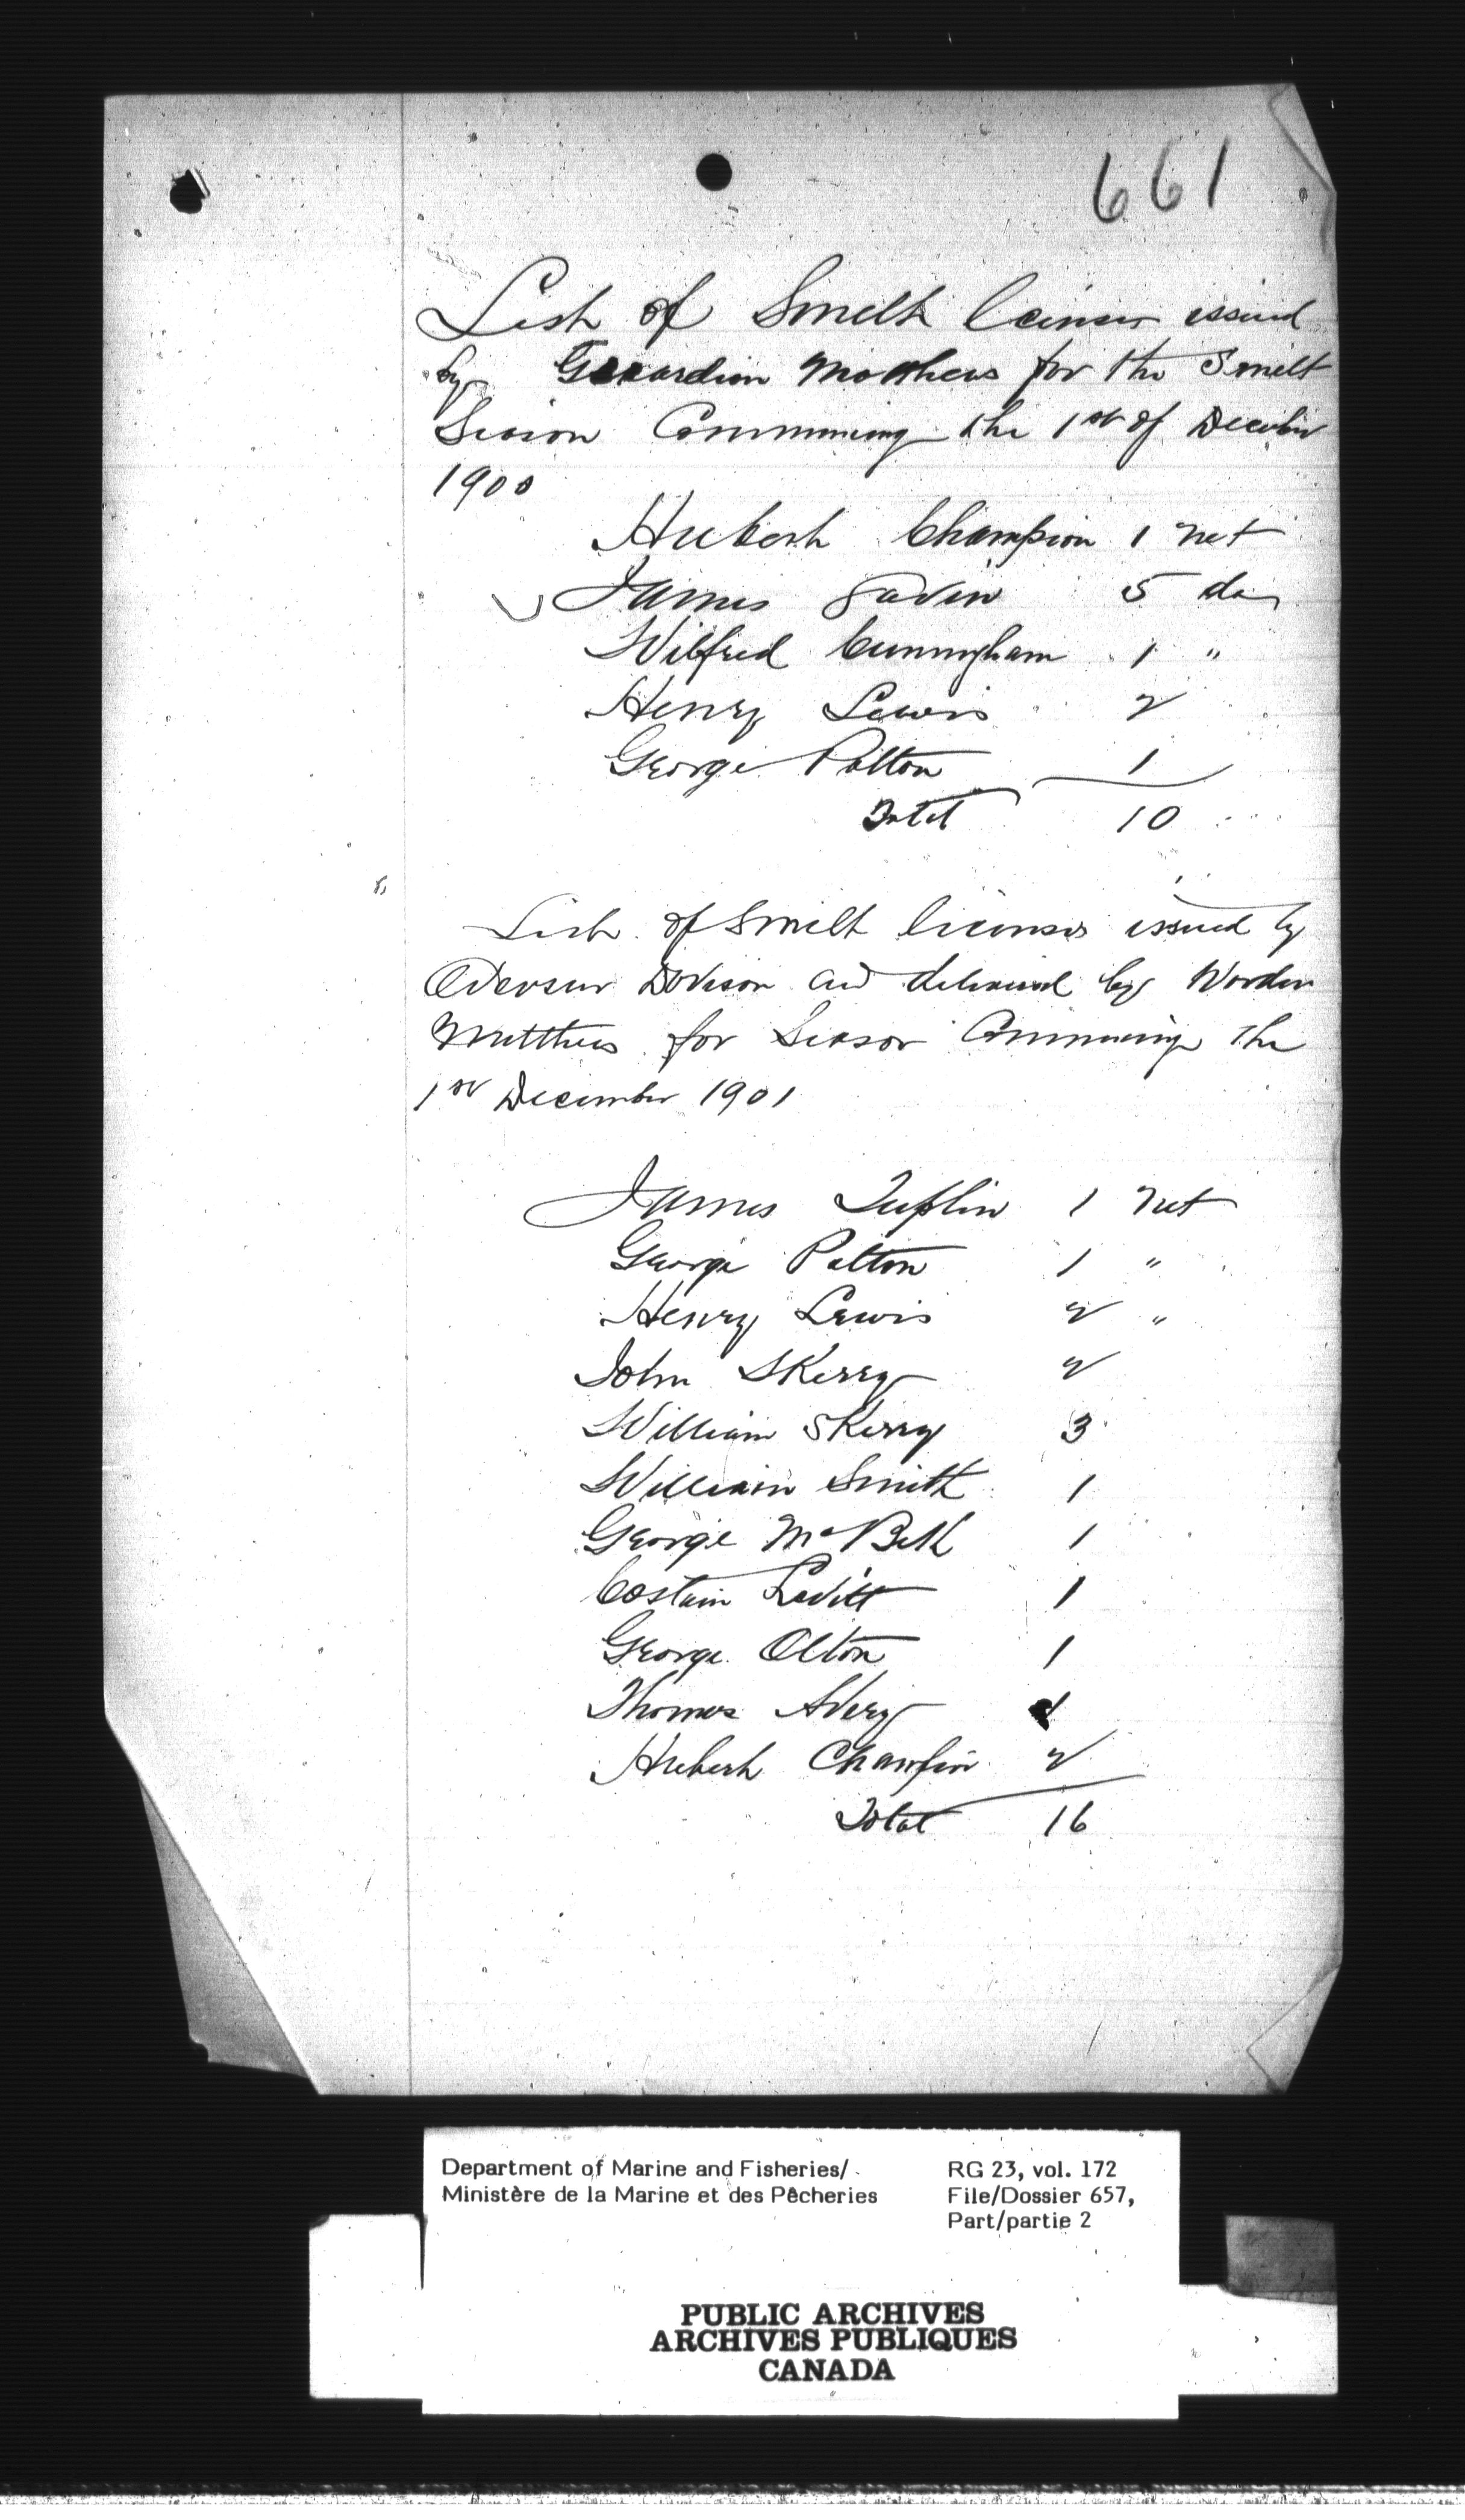 661
List of Smelt licenses issued
by Guardian Matthews for the Smelt
Season Commencing the 1st of December
1900
Hubert Champion 1 net
James Gavin 5 do
Wilfred Cunningham 1 "
Henry Lewis 2
George Patton 1
Total 10
List of Smelt licenses issued by
Overseer Davison and delivered by Warden
Matthews for Season Commencing the
1st December 1901
James Tuplin 1 net
George Patton 1 "
Henry Lewis 2 "
John Skerry 2
William Skerry 3
William Smith 1
George McBeth 1
Costain Lavitt 1
George Olton 1
Thomas Avery 1
Hubert Champion 2
Total 16
Department of Marine and Fisheries/
Ministère de la Marine et des Pêcheries
RG 23, vol. 172
File/Dossier 657,
Part/partie 2
PUBLIC ARCHIVES
ARCHIVES PUBLIQUES
CANADA